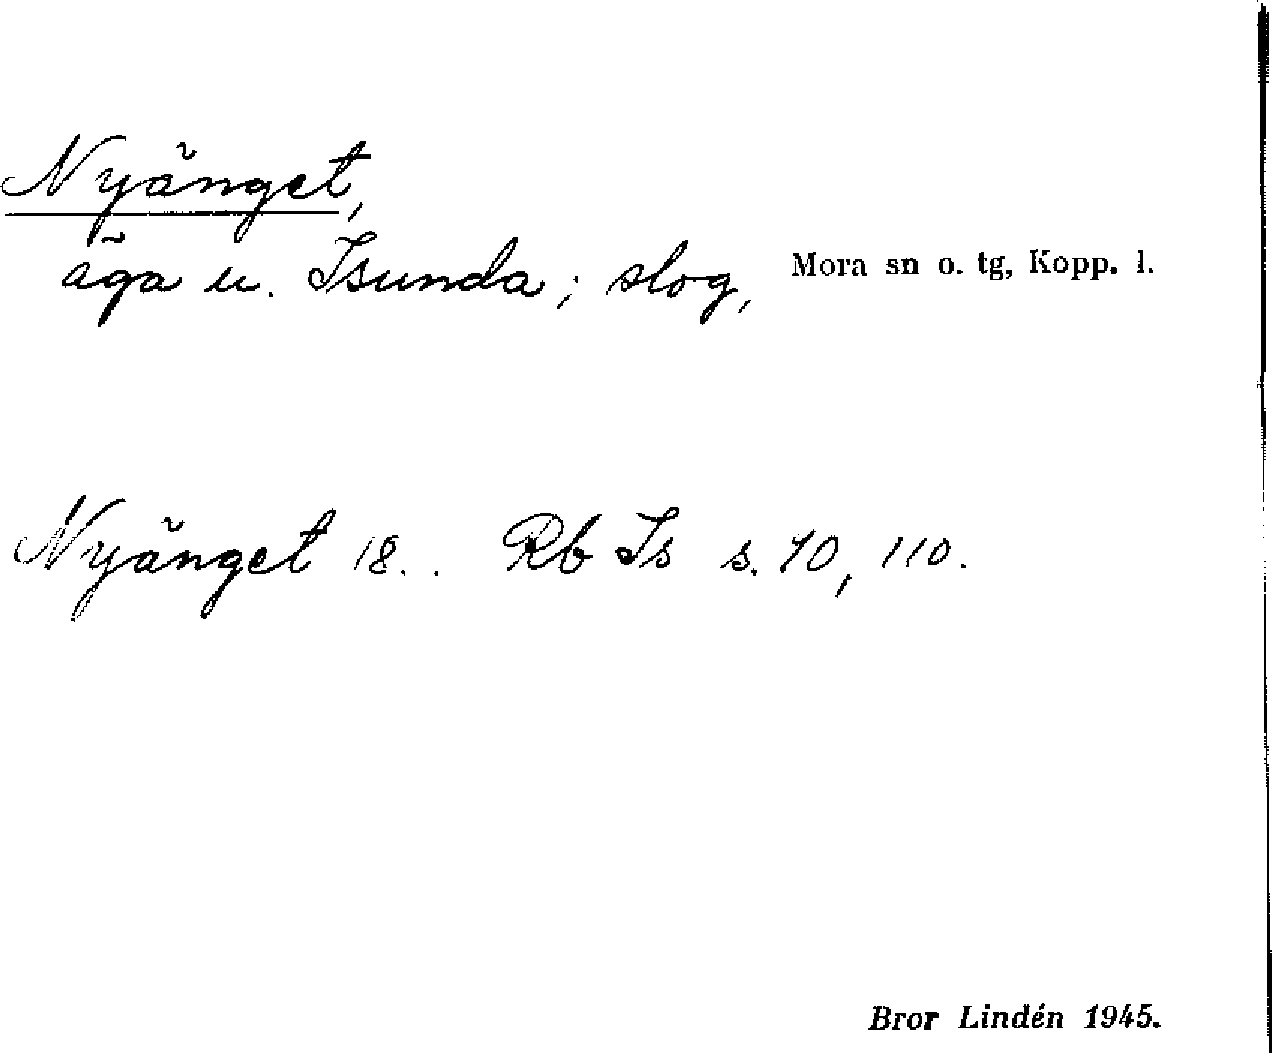 Nyänget,
äga u. Isunda; slog, Mora sn o. tg, Kopp. l.
Nyänget 18.. Rb Is s. 70, 110.
Bror Lindén 1945.